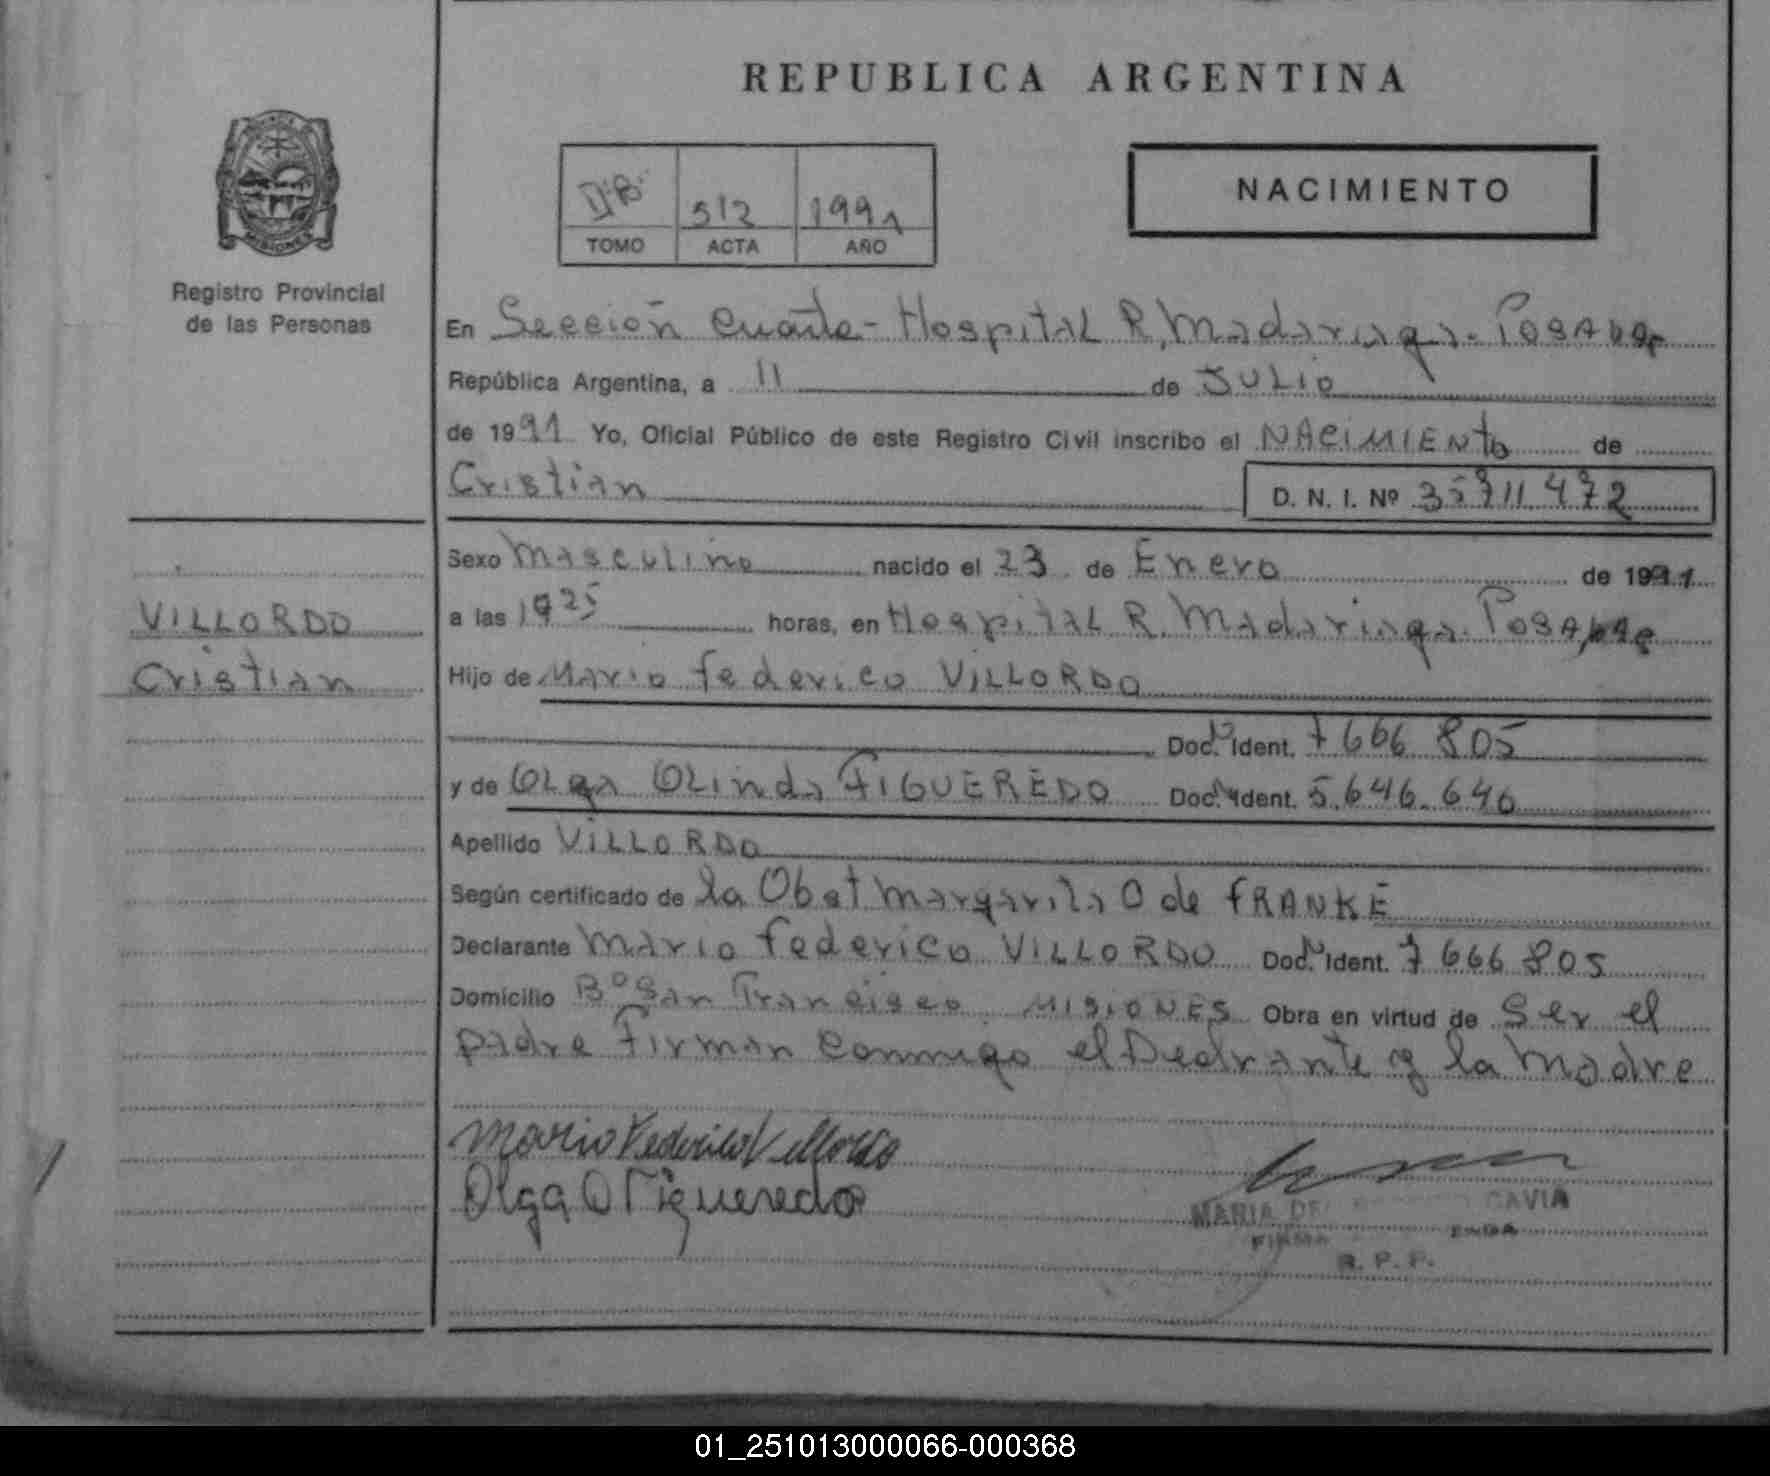 REPUBLICA ARGENTINA
NACIMIENTO
512 1991
TOMO ACTA AÑO
MISIONES
Registro Provincial
de las Personas
En Sección Cuarta - Hospital R. Madariaga - Posadas
República Argentina, a 11 de JULIO
de 1991 Yo, Oficial Público de este Registro Civil inscribo el NACIMIENTO de
Cristian D. N. I. Nº 35711472
Sexo Masculino nacido el 23 de Enero de 1991
a las 1925 horas, en Hospital R. Madariaga. Posadas
VILLORDO
Cristian
Hijo de Mario Federico VILLORDO
Doc. Ident. 7 666 805
y de OLga OLinda FIGUEREDO Doc. Ident. 5.646.646
Apellido VILLORDO
Según certificado de la Obst Margarita O de FRANKE
Declarante Mario Federico VILLORDO Doc. Ident. 7 666 805
Domicilio Bº San Francisco MISIONES Obra en virtud de Ser el
padre Firman conmigo el Declrante y la Madre
Mario Federico Villordo
Olga O Figueredo
MARIA DE CAVIA
FIRMA
R. P. P.
01_251013000066-000368